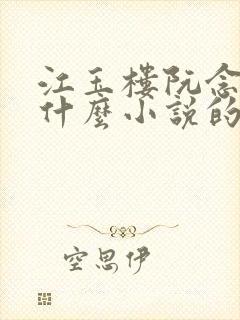 江玉樓阮念
什麼小說的
空思伊